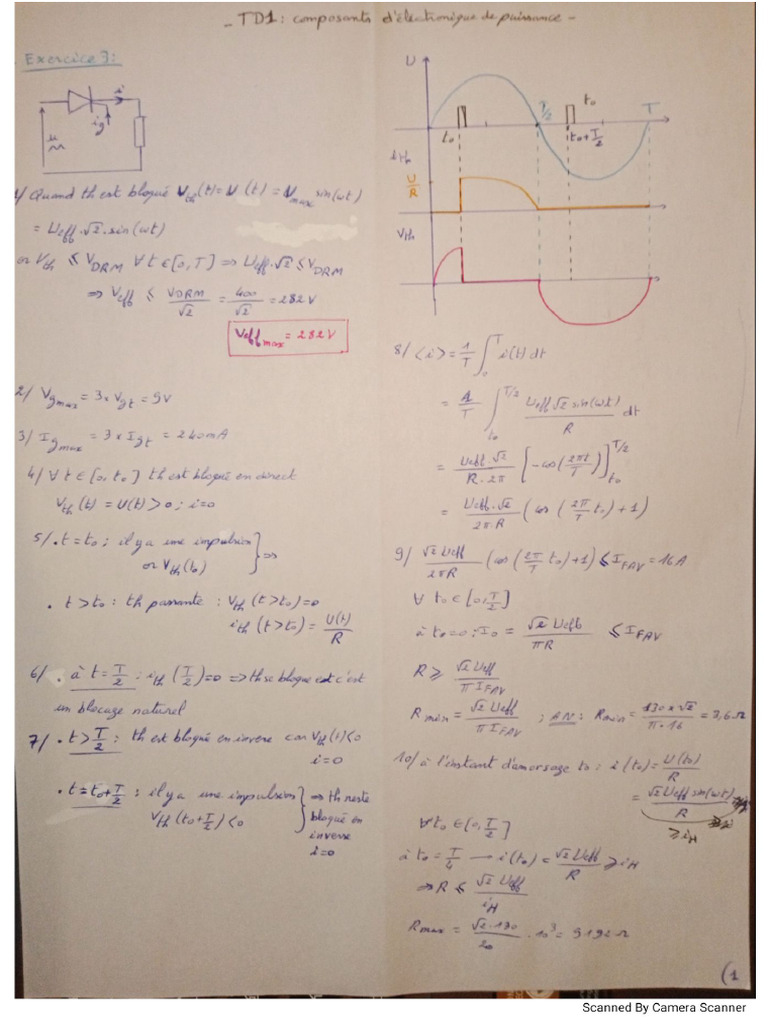 - TD1: composants d'électronique de puissance -
Exercice 3:
i
ig
u
1/ Quand th est bloqué Vth(t) = U(t) = Umax sin(wt)
= Ueff.√2.sin(wt)
or Vth ≤ VDRM ∀ t ∈ [0, T] ⟹ Ueff.√2 ≤ VDRM
⟹ Veff ≤ VDRM/√2 = 400/√2 = 282 V
Veffmax = 282 V
2/ Vgmax = 3 x Vgt = 9V
3/ Igmax = 3 x Igt = 240mA
4/ ∀ t ∈ [0, to] th est bloqué en direct
Vth (t) = U(t) > 0 ; i=0
5/ . t = to ; il y a une impulsion } ⟹
or Vth (to)
. t > to : th passante : Vth (t>to) = 0
ith (t>to) = U(t)/R
6/ . à t = T/2 : ith (T/2) = 0 ⟹ th se bloque et c'est
un blocage naturel
7/ . t > T/2 : th est bloqué en inverse car Vth(t) < 0
i = 0
. t = to + T/2 : il y a une impulsion } ⟹ th reste
Vth (to + T/2) < 0 bloqué en
inverse
i = 0
U
to
T/2
to
T
to + T/2
ith
U/R
Vth
8/ <i> = 1/T ∫₀ᵀ i(t) dt
= 1/T ∫ to T/2 Ueff √2 sin(wt)/R dt
= Ueff.√2/R.2π [-cos(2πt/T)] to T/2
= Ueff.√2/2π.R (cos(2π/T to) + 1)
9/ √2 Ueff/2πR (cos(2π/T to) + 1) ≤ IFAV = 16A
∀ to ∈ [0, T/2]
à to = 0 : Io = √2 Ueff/πR ≤ IFAV
R ≥ √2 Ueff/π IFAV
Rmin = √2 Ueff/π IFAV ; AN : Rmin = 130 x √2/π . 16 = 3,6 Ω
10/ à l'instant d'amorsage to : i (to) = U(to)/R
= √2 Ueff sin(wt)/R
≥ iH
∀ to ∈ [0, T/2]
à to = T/4 → i(to) = √2 Ueff/R ≥ iH
⟹ R ≤ √2 Ueff/iH
Rmax = √2.130/20 . 10³ = 9192 Ω
(1
Scanned By Camera Scanner